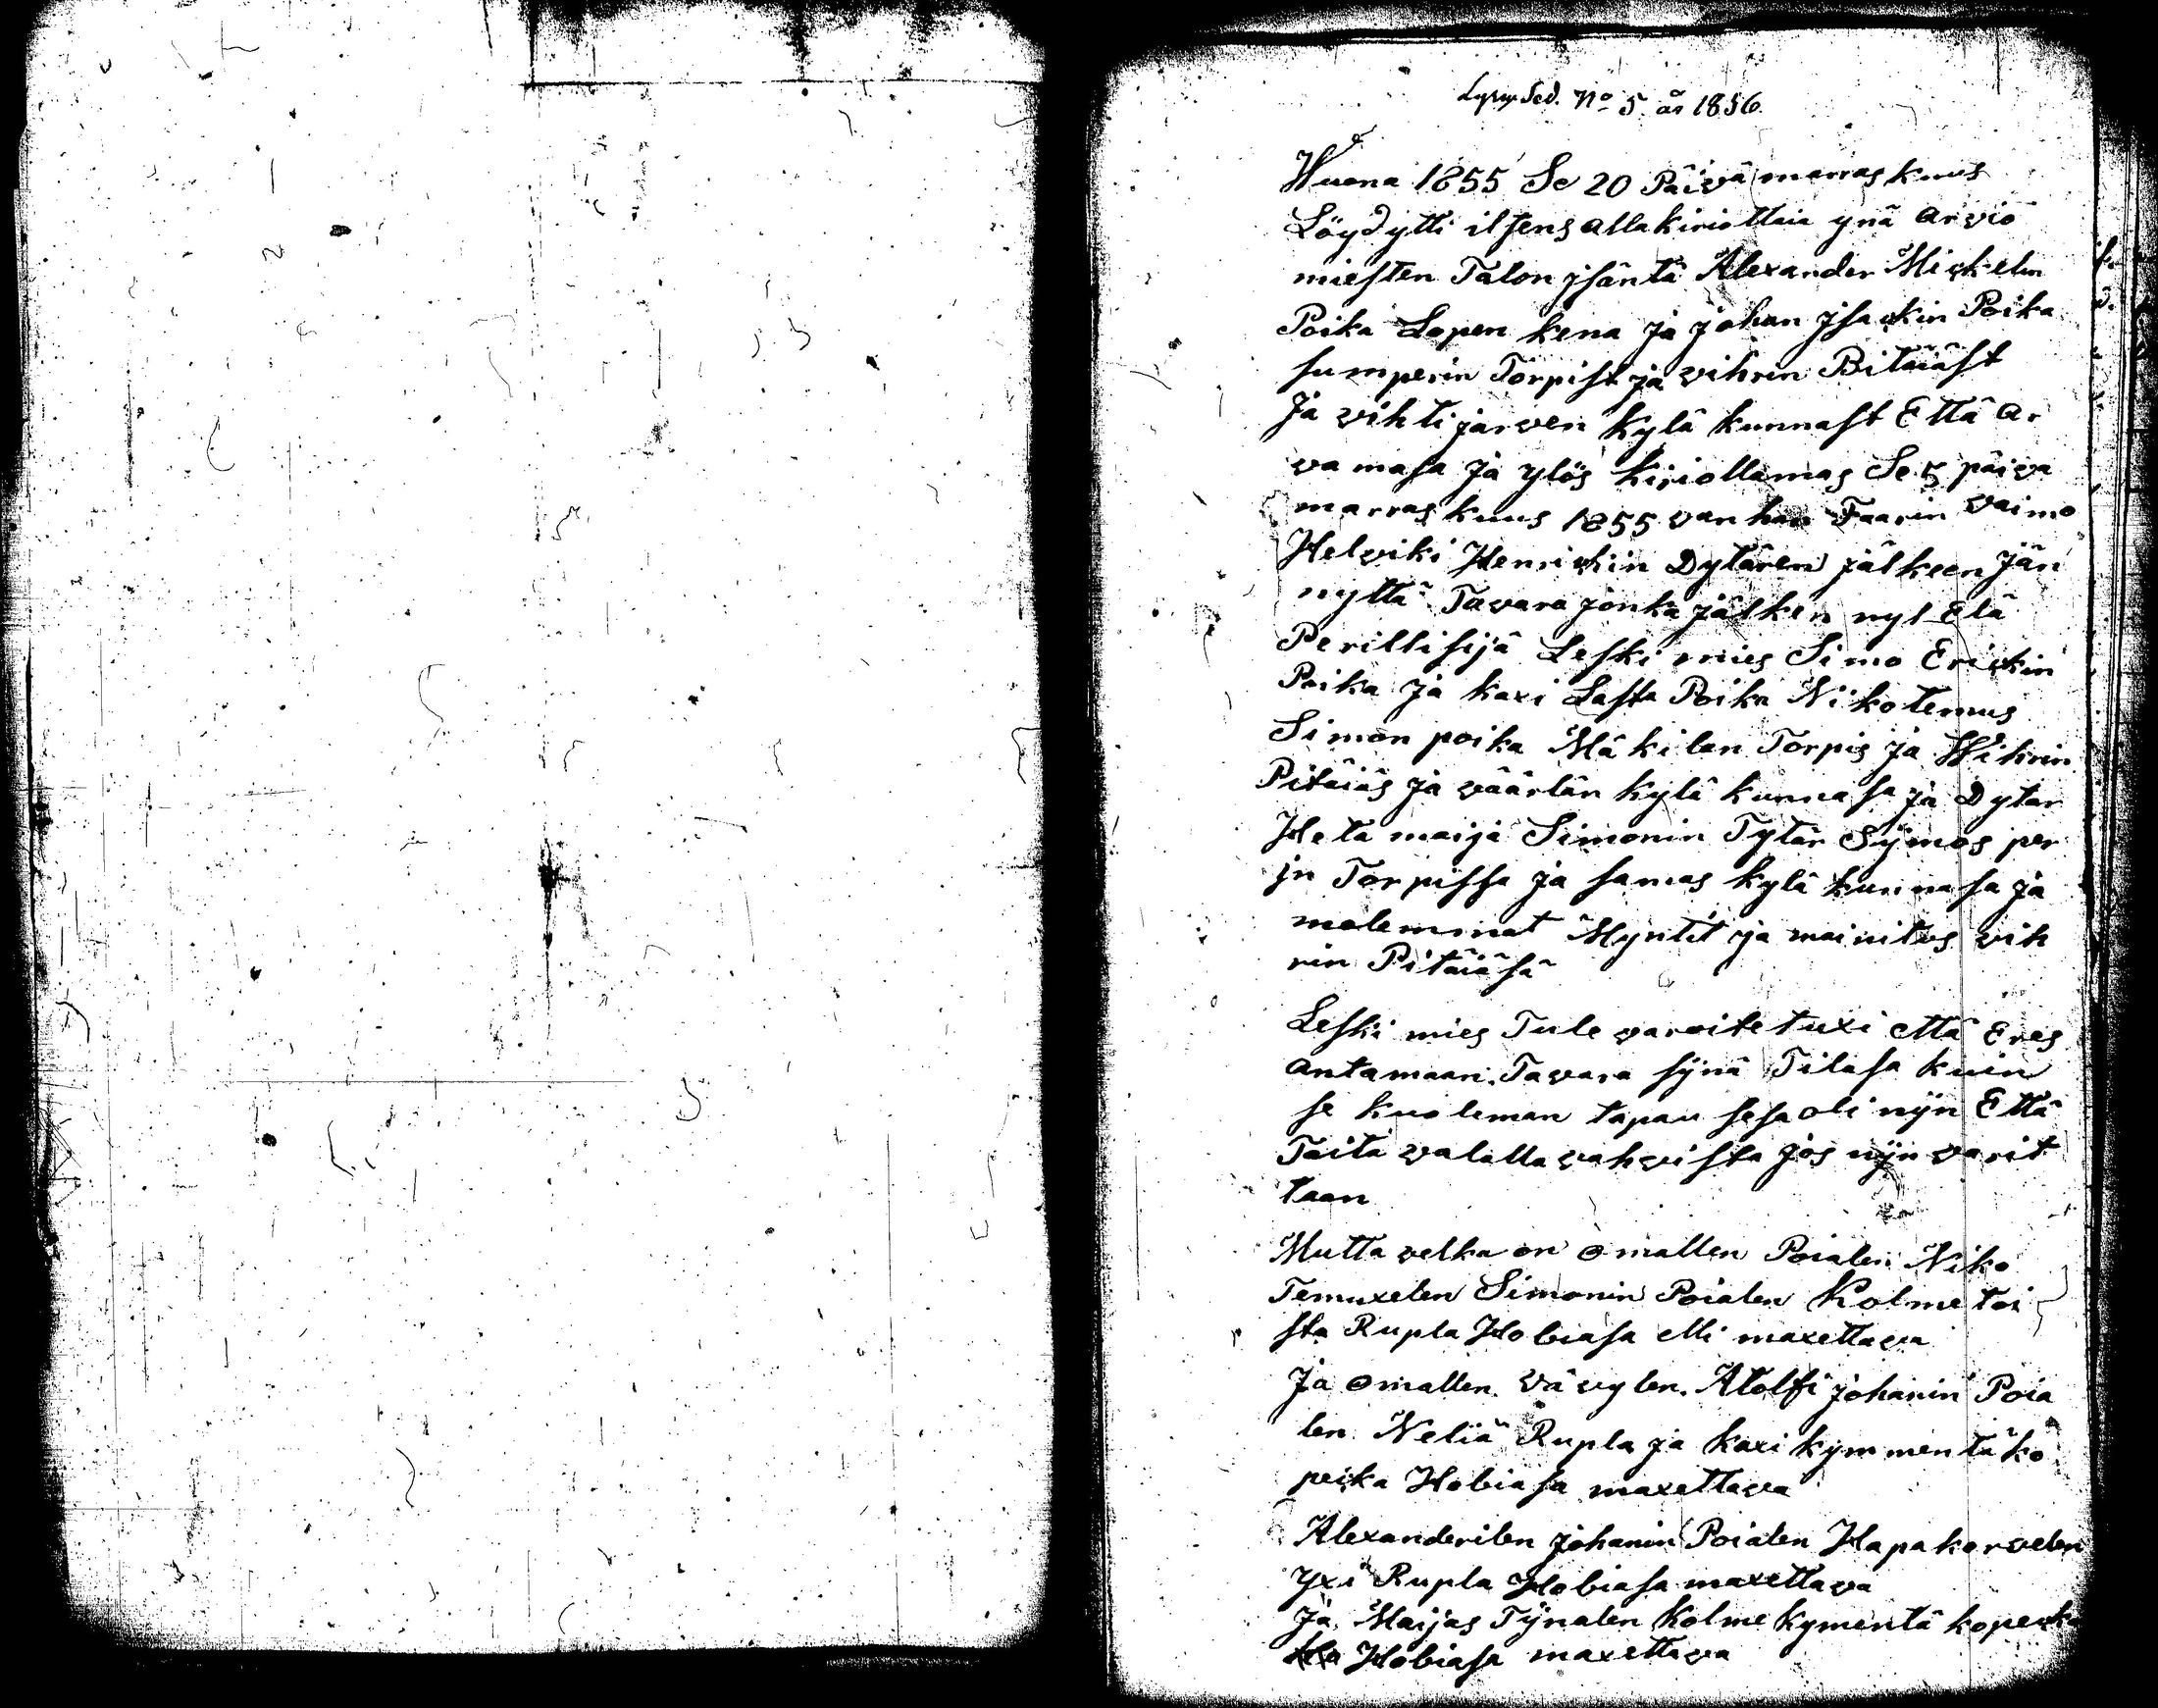 No 5. år 1856.
Wuona 1855 Se 20 Päivä marras kuus
Löydytti itsens allakirioittaia ynä arvio
miesten Talon jsäntä Alexander Mickelin
Poika Lopen kena ja johan jsackin Poika
sumperin Torpist ja vihrin Pitäiäst
Ja vihti järven kylä kunnast Että ar
va masa ja ylös kirjottamas Se 5 päiva
marras kuus 1855 van han Faarin vaimo
Helviki Henrickin Dytären jälkeen jän
nyttä Tavara jonka jälken nyt Elä
Perillisijä Leski mies Simo Erickin
Poika ja kaxi Lasta Poika Nikotemus
Simon poika Mäkilan Torpis ja Wihrin
Pitäiäs ja väärlän kylä kunnasa ja Dytär
Heta maija Simonin Tytär Symos per
jn Torpissa ja samas kylä kunnasa ja
molemmat Myntit ja mainitus vih
rin Pitäiäsä
Leski mies Tule varoitetuxi että Eres
antamaan Tavara synä Tilasa kuin
se kuoleman tapau sesa oli nyn Että
Taita valalla vahvista jos nyn varit
taan
Mutta velka on omallen Poialen Niko
Temuxelen Simonin Poialen Kolme toi
sta Rupla Hobiasa elli maxettava
Ja omallen vävylen Atolfi johanin Poia
len Neliä Rupla ja kaxi kymmentä ko
peika Hobiasa maxettava
Alexanderilen johanin Poialen Hapakorvelen
yxi Rupla Hobiasa maxettava
Ja Maijas Tynalen kolme kymentä kopeck
Hobiasa maxettava